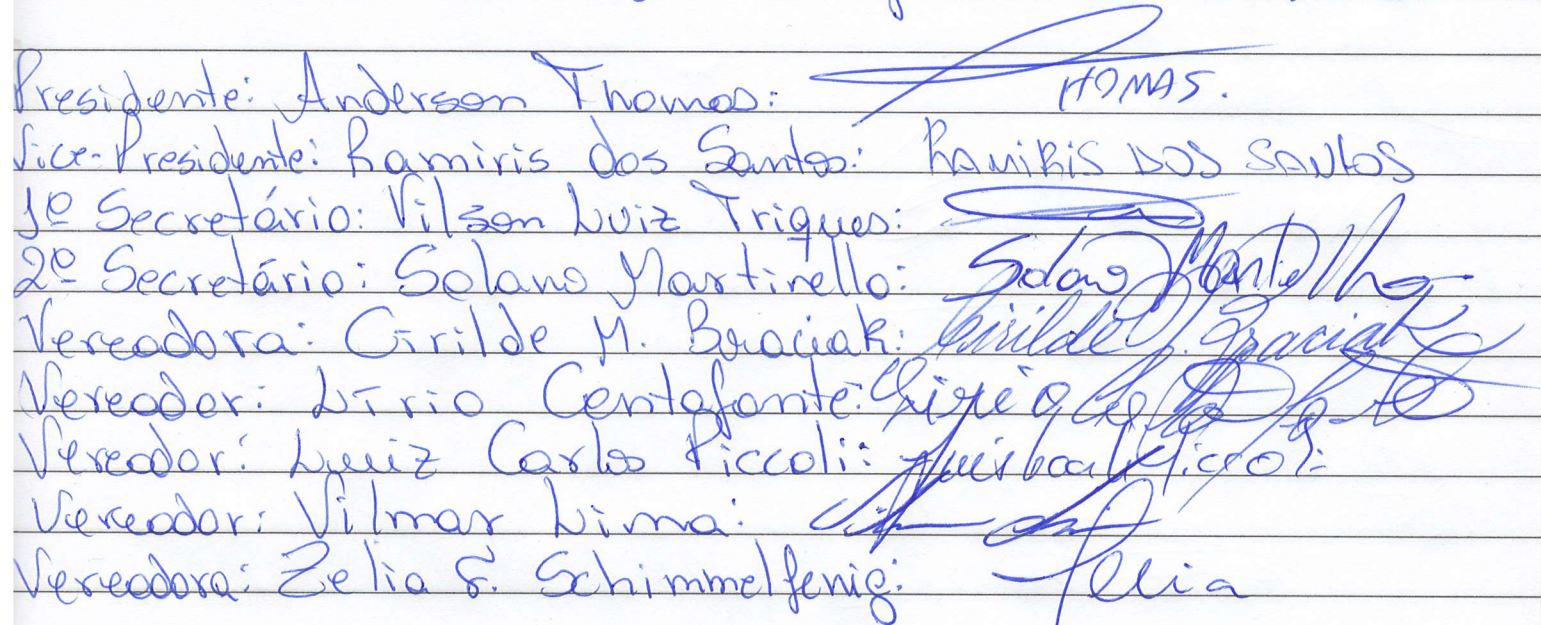 Presidente: Anderson Thomas: THOMAS.
Vice-Presidente: Ramiris dos Santos: RAMIRIS DOS SANTOS
1º Secretário: Vilson Luiz Triques:
2º Secretário: Solano Martinello: Solano Martinello
Vereadora: Cirilde M. Braciak: Cirilde M. Braciak
Vereador: Lírio Centofante: Lirio
Vereador: Luiz Carlos Piccoli: Luis Carl Piccoli
Vereador: Vilmar Lima:
Vereadora: Zelia F. Schimmelfenig: Zelia